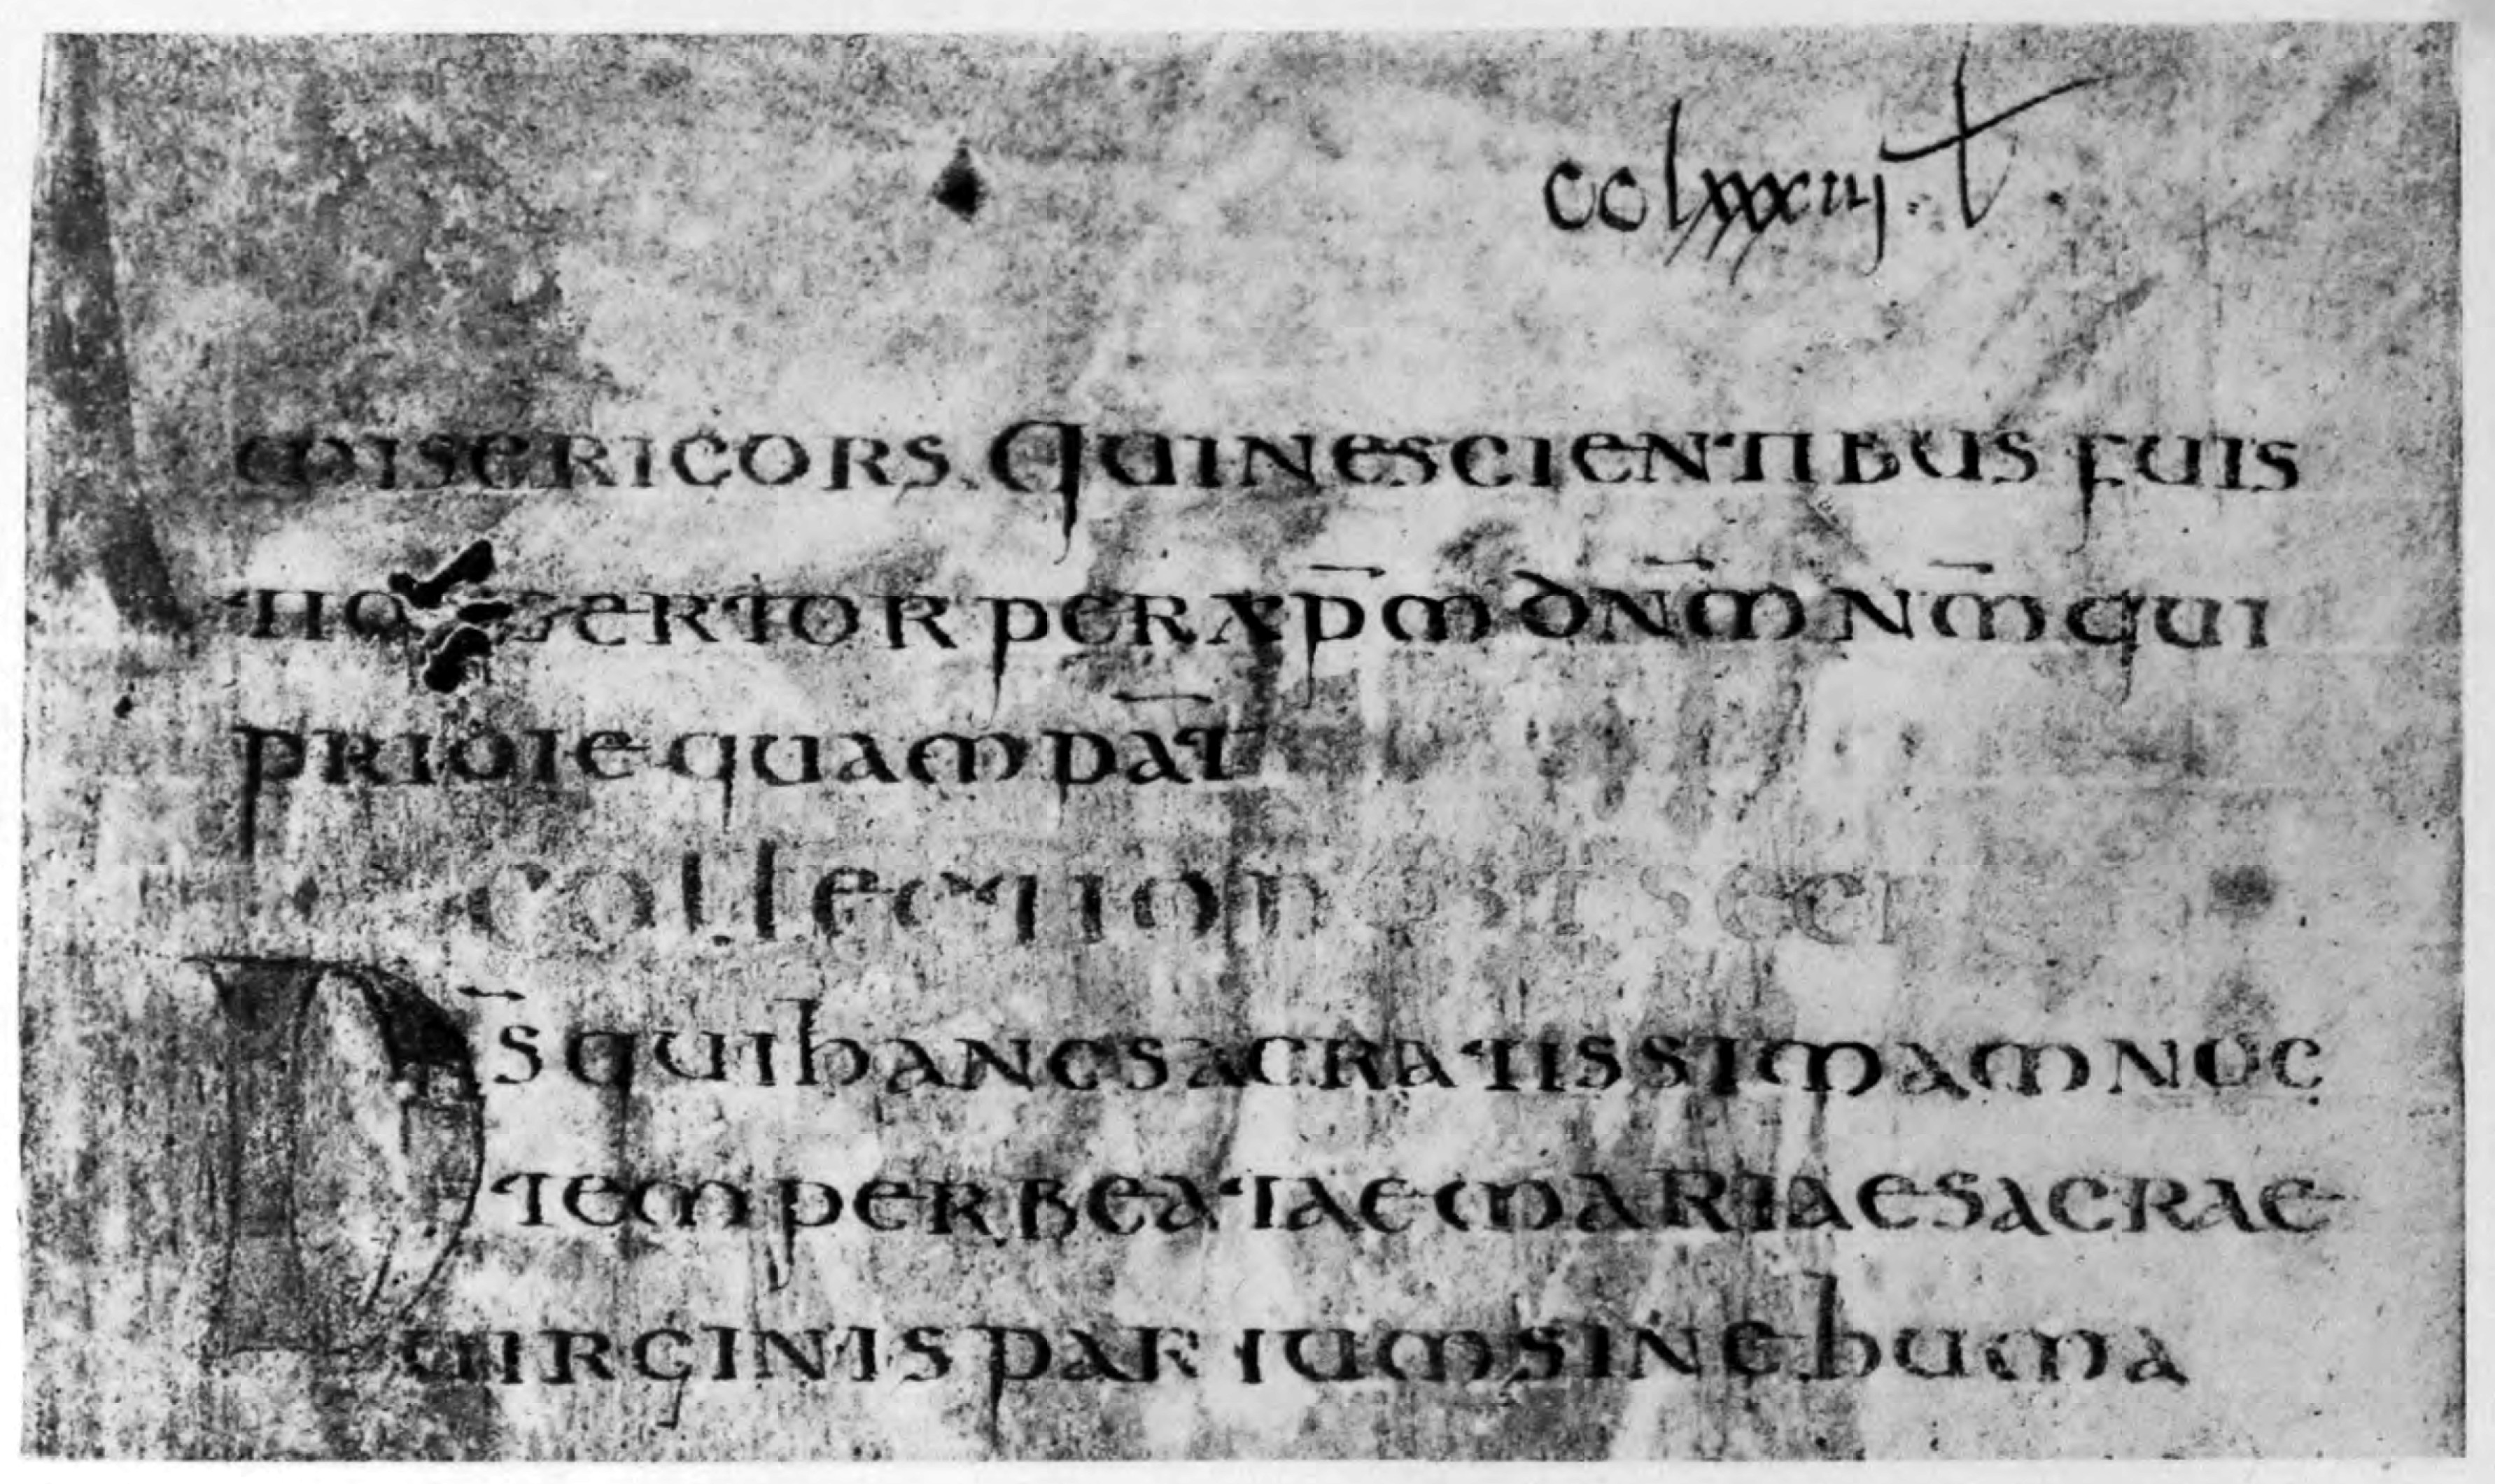 cclxxxiiij. t.
MISERICORS. QUINESCIENTIBUS FUIS
PERXP̄M DN̄M NM̄QUI
PRIDIEQUAMPAT̄
COLLECTION SECR
DS̄QUIHANCSACRATISSIMAMNOC
TEMPERBEATAEMARIAESACRAE
UIRGINISPARTUMSINEHUMA